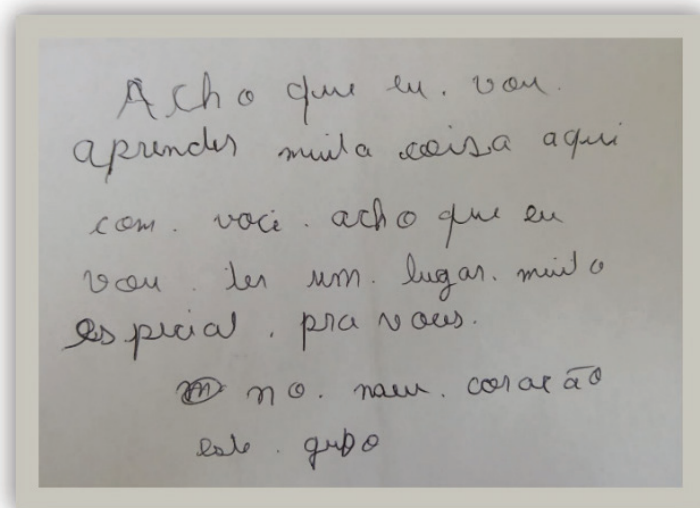 Acho que eu. vou.
aprender muita coisa aqui
com. voce. acho que eu
vou. ter um. lugar. muito
especial. pra voces.
no. naeu. coração
este. gupo